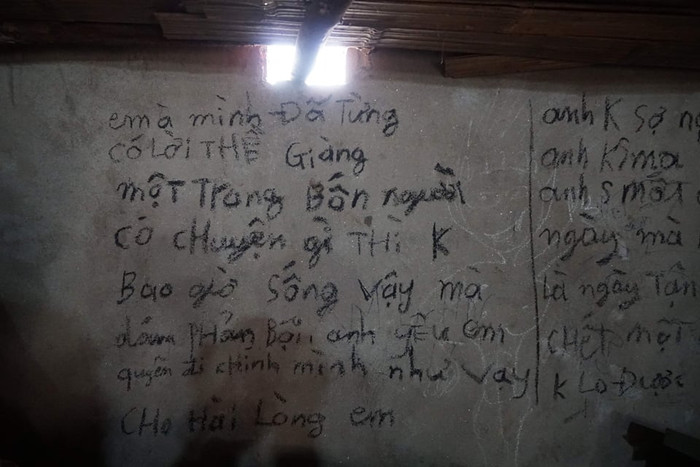 em à mình Đã Từng
có Lời THỀ Giàng
một Trong Bốn người
có cHuyện gì THì K
Bao giờ Sống Vậy mà
dám PHản Bội, anh yêu em
quên đi chính mình như vậy
CHo Hài Lòng em
anh K Sợ
anh
anh
ngày mà
là ngày Tận
CHết một
K Lo Được